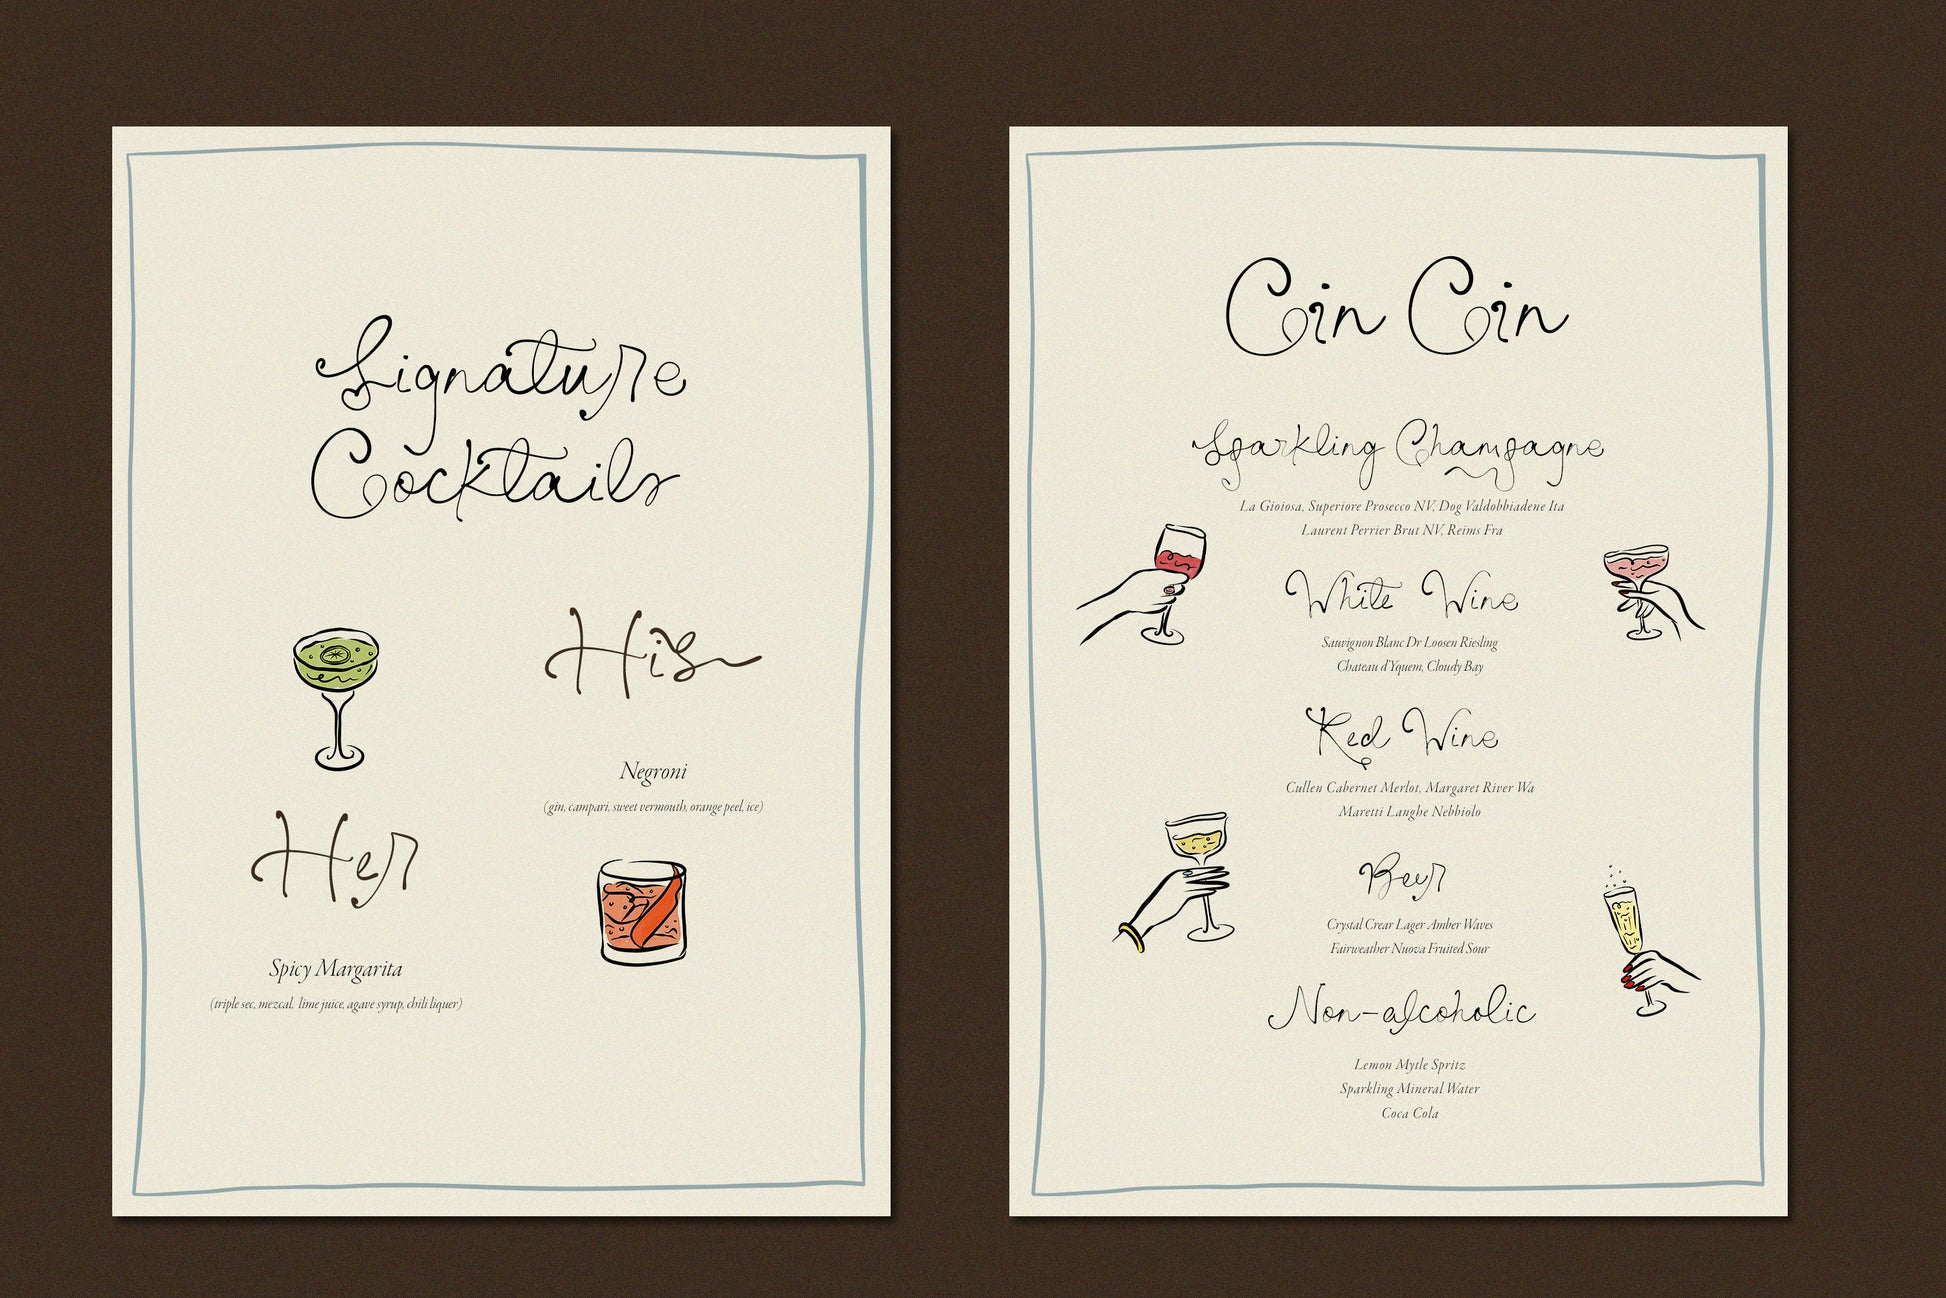 Signature
Cocktails
His
Negroni
(gin, campari, sweet vermouth, orange peel, ice)
Her
Spicy Margarita
(triple sec, mezcal, lime juice, agave syrup, chili liquer)
Cin Cin
Sparkling Champagne
La Gioiosa, Superiore Prosecco NV, Dog Valdobbiadene Ita
Laurent Perrier Brut NV, Reims Fra
White Wine
Sauvignon Blanc Dr Loosen Riesling
Chateau d'Yquem, Cloudy Bay
Red Wine
Cullen Cabernet Merlot, Margaret River Wa
Maretti Langhe Nebbiolo
Beer
Crystal Crear Lager Amber Waves
Fairweather Nuova Fruited Sour
Non-alcoholic
Lemon Mytle Spritz
Sparkling Mineral Water
Coca Cola